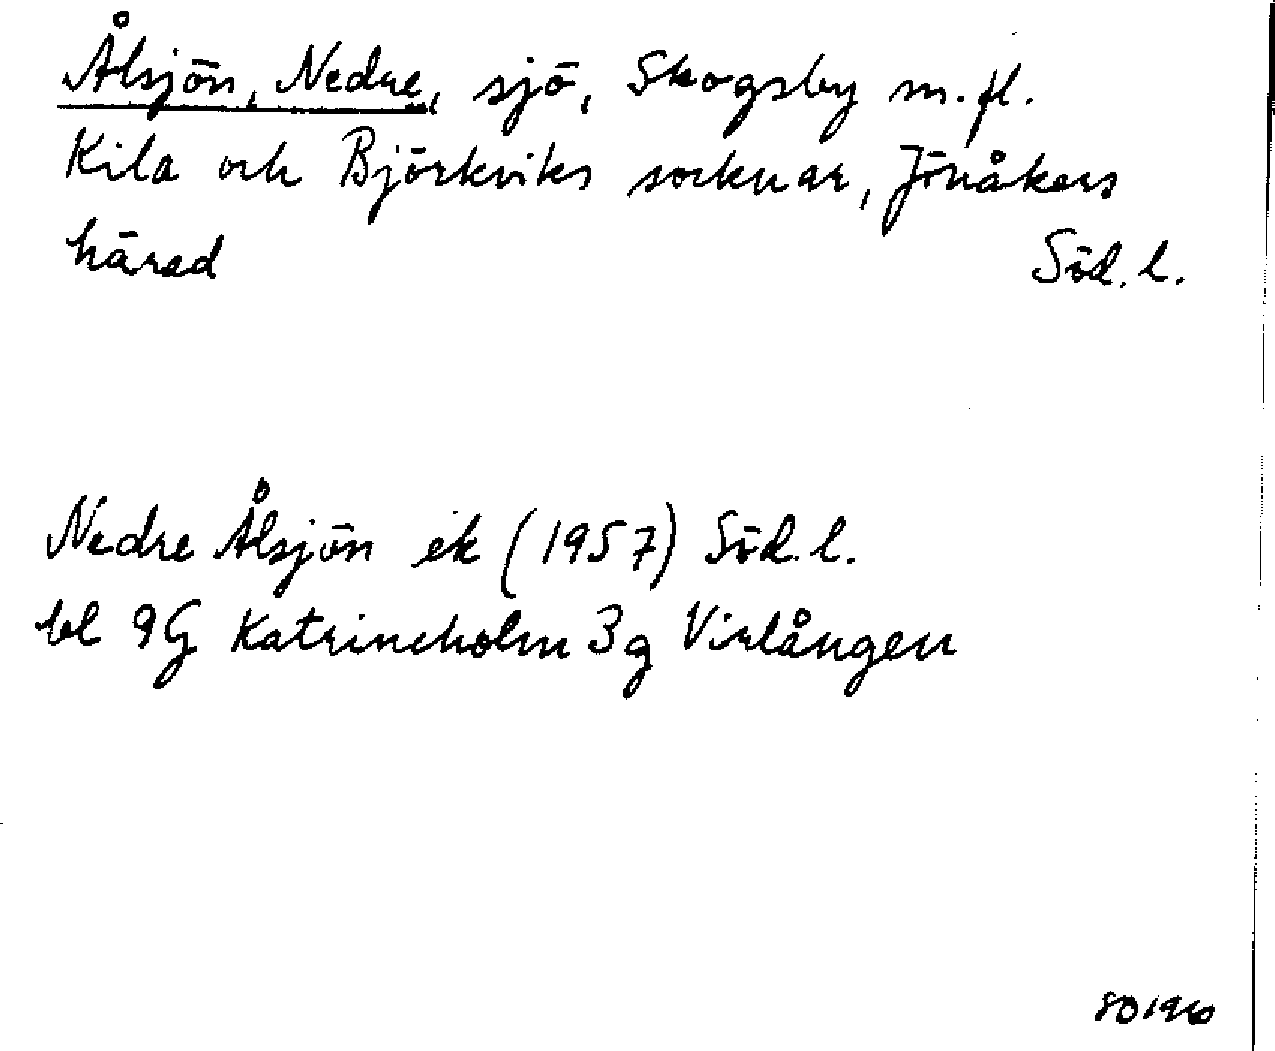 Ålsjön, Nedre, sjö, Skogsby m.fl.
Kila och Björkviks socknar, Jönåkers
härad Söd. l.
Nedre Ålsjön ek (1957) Söd. l.
bl 9G Katrineholm 3g Virlången